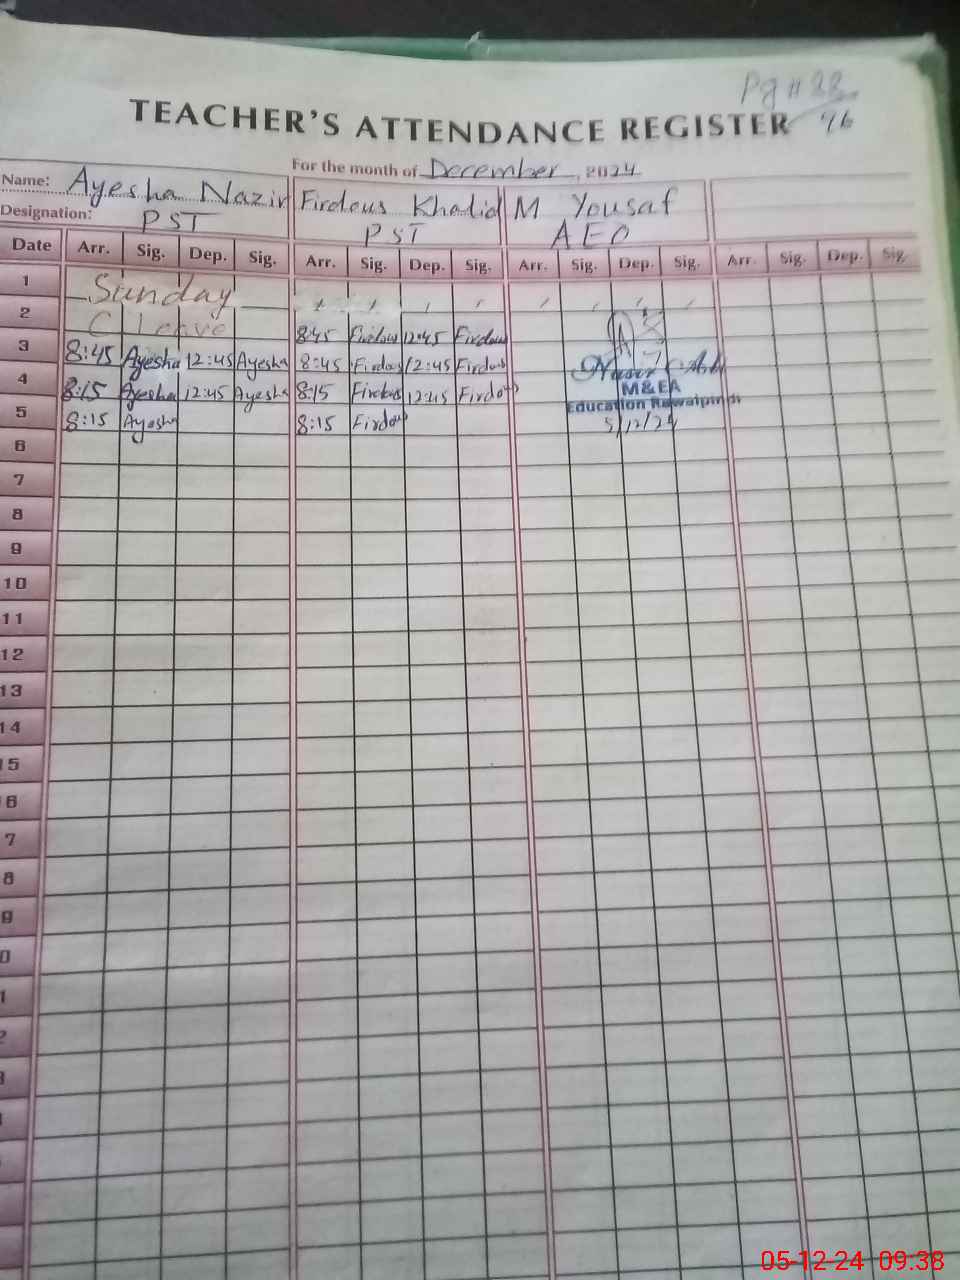 Pg # 88
96
TEACHER'S ATTENDANCE REGISTER
For the month of December, 2024
Name: Ayesha Nazir Firdous Khalid M Yousaf
Designation: PST PST AEO
Date Arr. Sig. Dep. Sig. Arr. Sig. Dep. Sig. Arr. Sig. Dep. Sig. Arr. Sig. Dep. Sig.
1 Sunday
2 C Leave 8:45 Firdous 12:45 Firdous
3 8:45 Ayesha 12:45 Ayesha 8:45 Firdous 12:45 Firdous
4 8:15 Ayesha 12:45 Ayesha 8:15 Firdous 12:45 Firdous
M&EA
Education Rawalpindi
5 8:15 Ayesha 8:15 Firdous 5/12/24
6
7
8
9
10
11
12
13
14
15
6
7
8
9
0
1
2
05-12-24 09:38